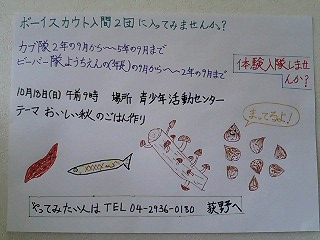 ボーイスカウト入間2団に入ってみませんか?
カブ隊 2年の9月から〜〜5年の9月まで
ビーバー隊 ようちえんの(年長)の9月から〜〜2年の9月まで
体験入隊しませんか?
10月18日(日)午前9時 場所 青少年活動センター
テーマ おいしい秋のごはん作り
まってるよ!
やってみたい人は TEL 04-2936-0180 荻野へ